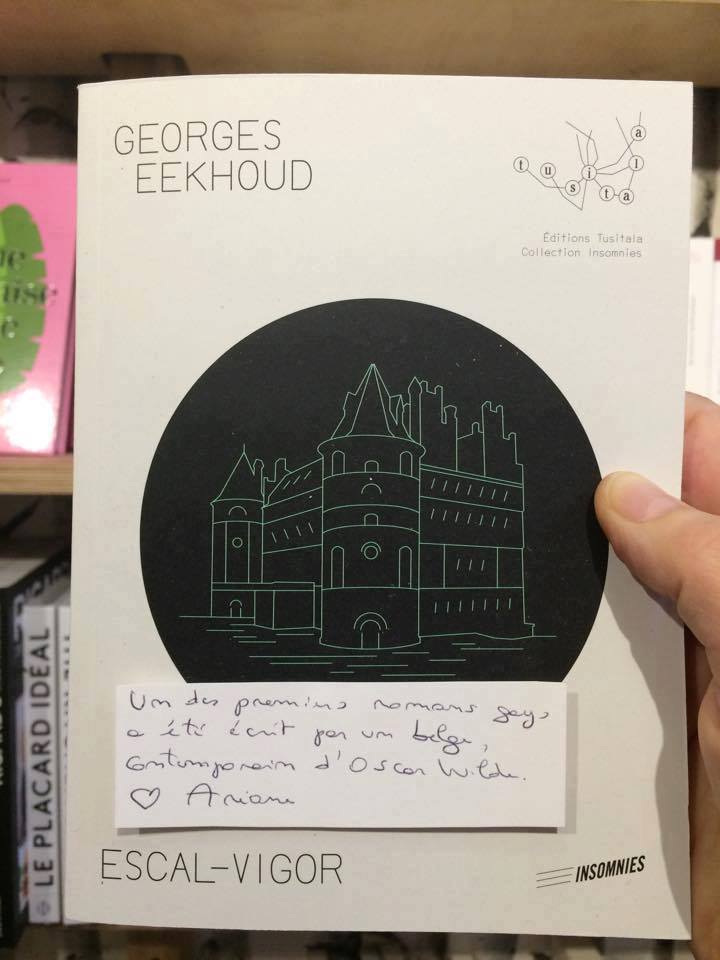 GEORGES
EEKHOUD
tusitala
Éditions Tusitala
Collection Insomnies
Un des premiers romans gays
a été écrit par un belge,
contemporain d'Oscar Wilde.
♡ Ariane
ESCAL-VIGOR
INSOMNIES
LE PLACARD IDÉAL